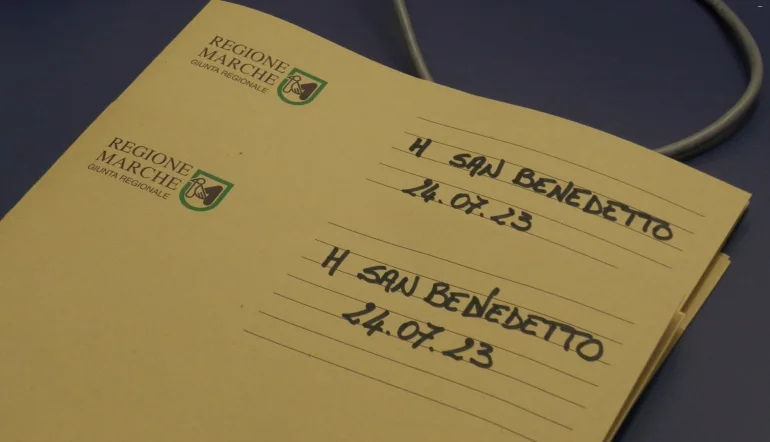 REGIONE
MARCHE
GIUNTA REGIONALE
H SAN BENEDETTO
24.07.23
REGIONE
MARCHE
GIUNTA REGIONALE
H SAN BENEDETTO
24.07.23